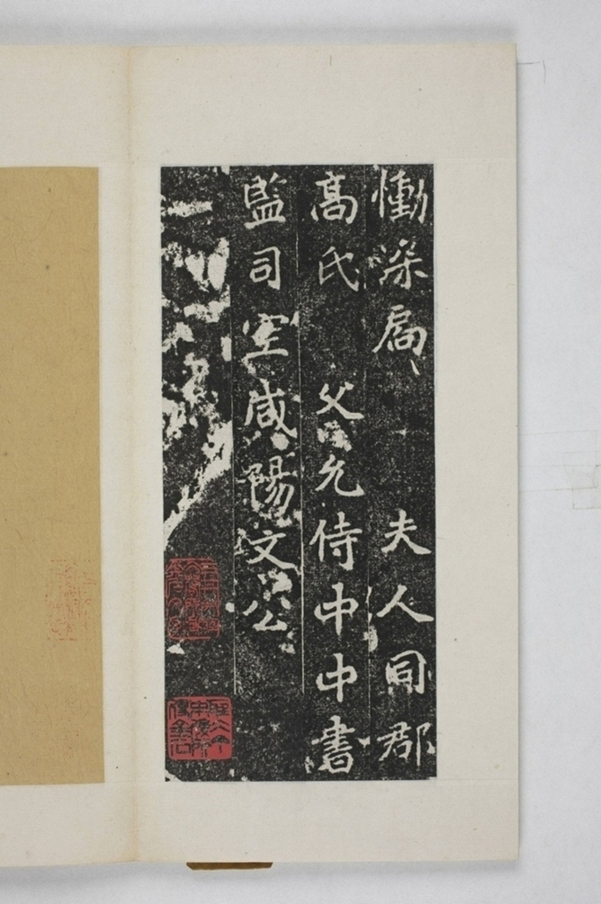 慟深 夫人同郡
高氏 父允侍中中書
監司空咸陽文公